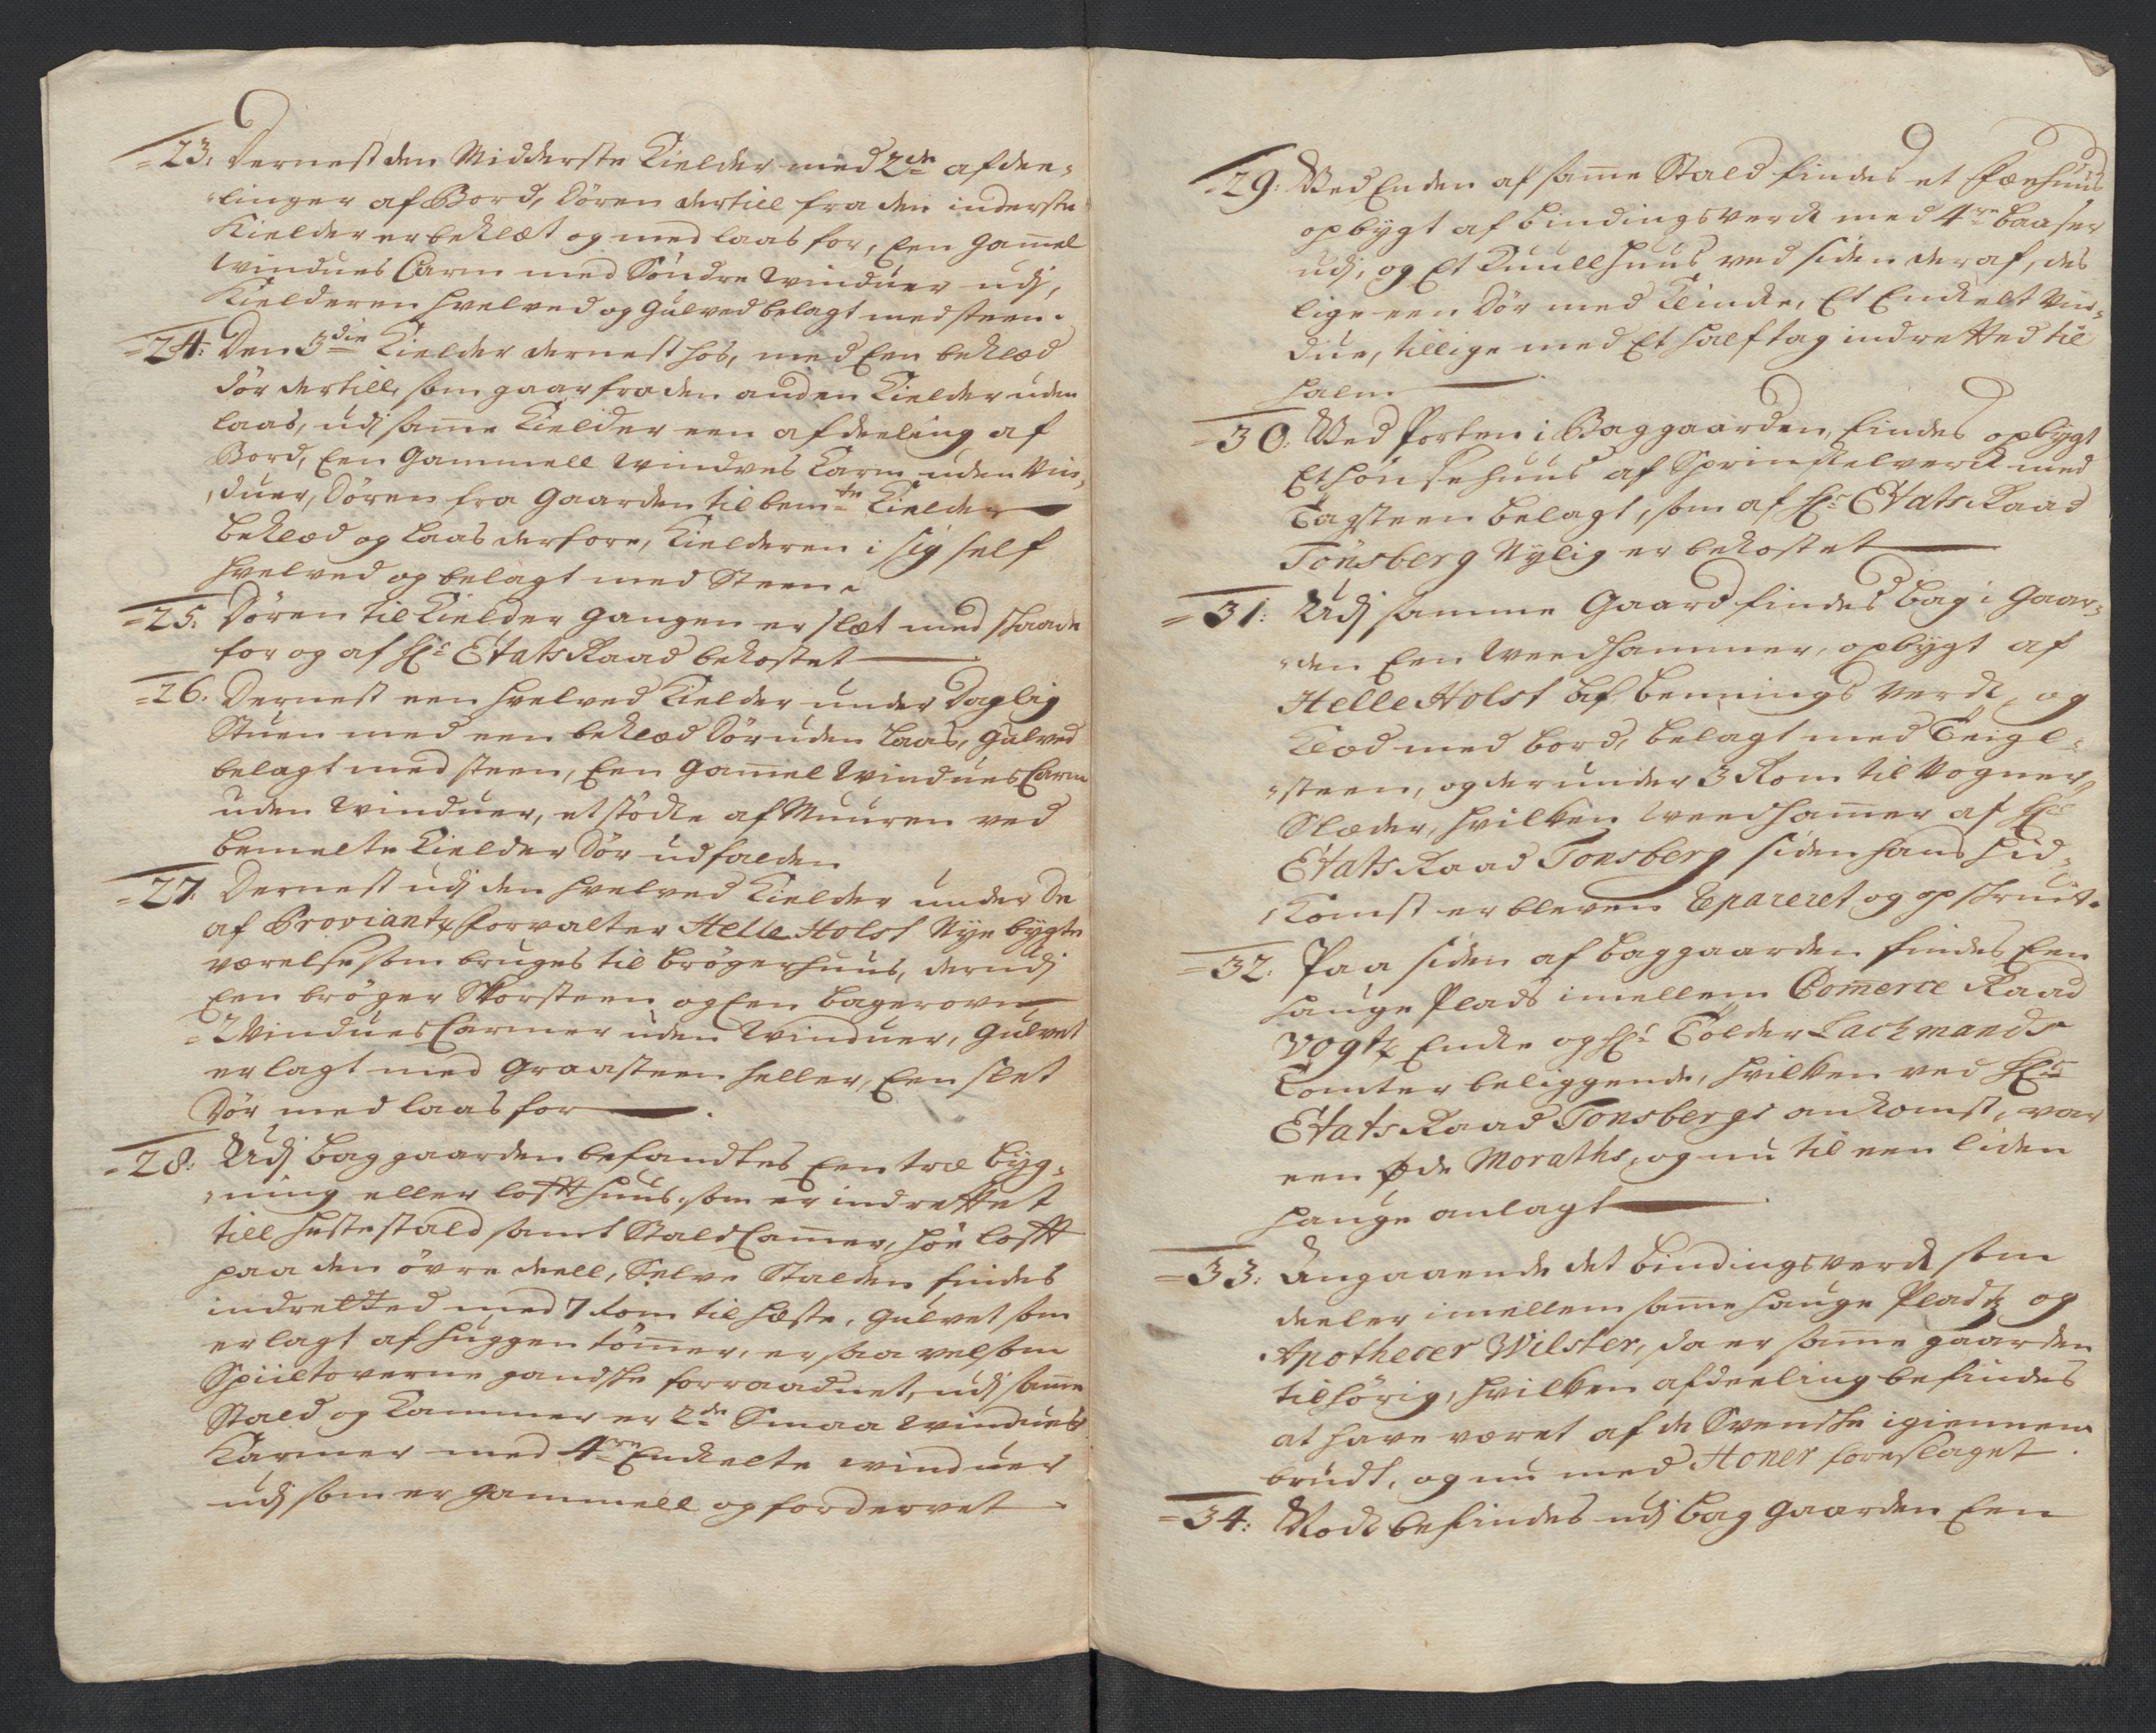 =23: Dernest den Midderste Kielder med 2de afdee=
=linger af Bord, Dören dertill fra den inderste
Kielder er beklæt og med laas for, Een gam̄el
Windues Carm med Söndre Winduer udj,
Kielderen hvelved og Gulved belagt med steen.
=24: Den 3die Kielder dernest hos, med Een beklæd
dör dertill, som gaar fra den anden Kielder uden
laas, udj sam̄e Kielder een afdeeling af
Bord, Een Gammell Windves Carm uden Vin=
=duer, Dören fra Gaarden til bemte Kielder
beklæd og laas derfore, Kielderen i sig self
hvelved og belagt med Steen.
=25: Dören til Kielder Gangen er slæt med skaade
for og af Hr: EtatsRaad bekostet
=26: Dernest een hvelved Kielder under Daglig
Stuen med een beklæd Dör uden Laas, Gulved
belagt med steen, Een Gam̄el Windues Carm
uden Winduer, et stöcke af Muuren ved
bemelte Kielder Dör udfalden
=27. Dernest udj den hvelved Kielder under De
af Proviantz Forvalter Helle Holst Nye bygte
værelse som bruges til Brögerhuus, derudj
Een bröger Skorsteen og Een bagerovn
=2 Windues Carmer uden Winduer, Gulvet
er lagt med Graasteen Heller, Een slet
Dör med laas for
=28: Udj Baggaarden befandtes Een træ byg=
=ning eller loftthuus som er indrettet
till Hestestald samt Stald Cam̄er, Höe Lofft
paa den övre deell, Selve Stalden findes
indretted med 7 Rom til Hæste, Gulvet som
er lagt af huggen töm̄er, er saa vel som
Spiiltoverne gandske forraadnet, udj sam̄e
Stald og Kammer er 2de Smaa Windues
Karmer med 4re Enckelte Winduer
udj som er gammell og fordervet
=29: Ved Enden af sam̄e Stald findes et Fæehuus
opbygt af bindingsverck med 4re baaser
udj, og Et Kuullhuus ved siden deraf, des
lige een Dör med Klincke, Et Enckelt Vin=
due, tillige med Et half tag indretted til
halm
=30. Ved Porten i Baggaarden, findes opbygt
Et hönsehuus af Sprinckelverck med
Tagsteen belagt, som af Hr: EtatsRaad
Tönsberg Nylig er bekostet
=31: Udj samme Gaard findes bag i Gaar=
=den Een Weedhammer, opbygt af
Helle Holst af Bennings Verck, og
Klæd med bord, belagt med Teigl=
=steen, og derunder 3 Rom til Vogner,
Slæder, hvilken Weedham̄er af Hr:
EtatsRaad Tonsberg siden hans hid=
=komst er bleven Repareret og opskruit.
=32: Paa siden af baggaarden findes Een
Hauge Plads imellem Com̄erce Raad
Vogtz Encke og Hr: Tolder Lachmands
Tomter beliggende, hvilken ved Hr:
EtatsRaad Tonsbergs ankomst, var
een Øde Moraths, og nu til een liden
Hauge anlagt
=33: Angaaende det bindingsverck som
deeler imellem sam̄e Hauge Pladz og
Apothecer Wilster, da er sam̄e gaarden
tilhörig, hvilken afdeeling befindes
at have været af de Svenske igiennem
brudt, og nu med Honer foreslaget.
=34: Nock befindes udj Baggaarden Een